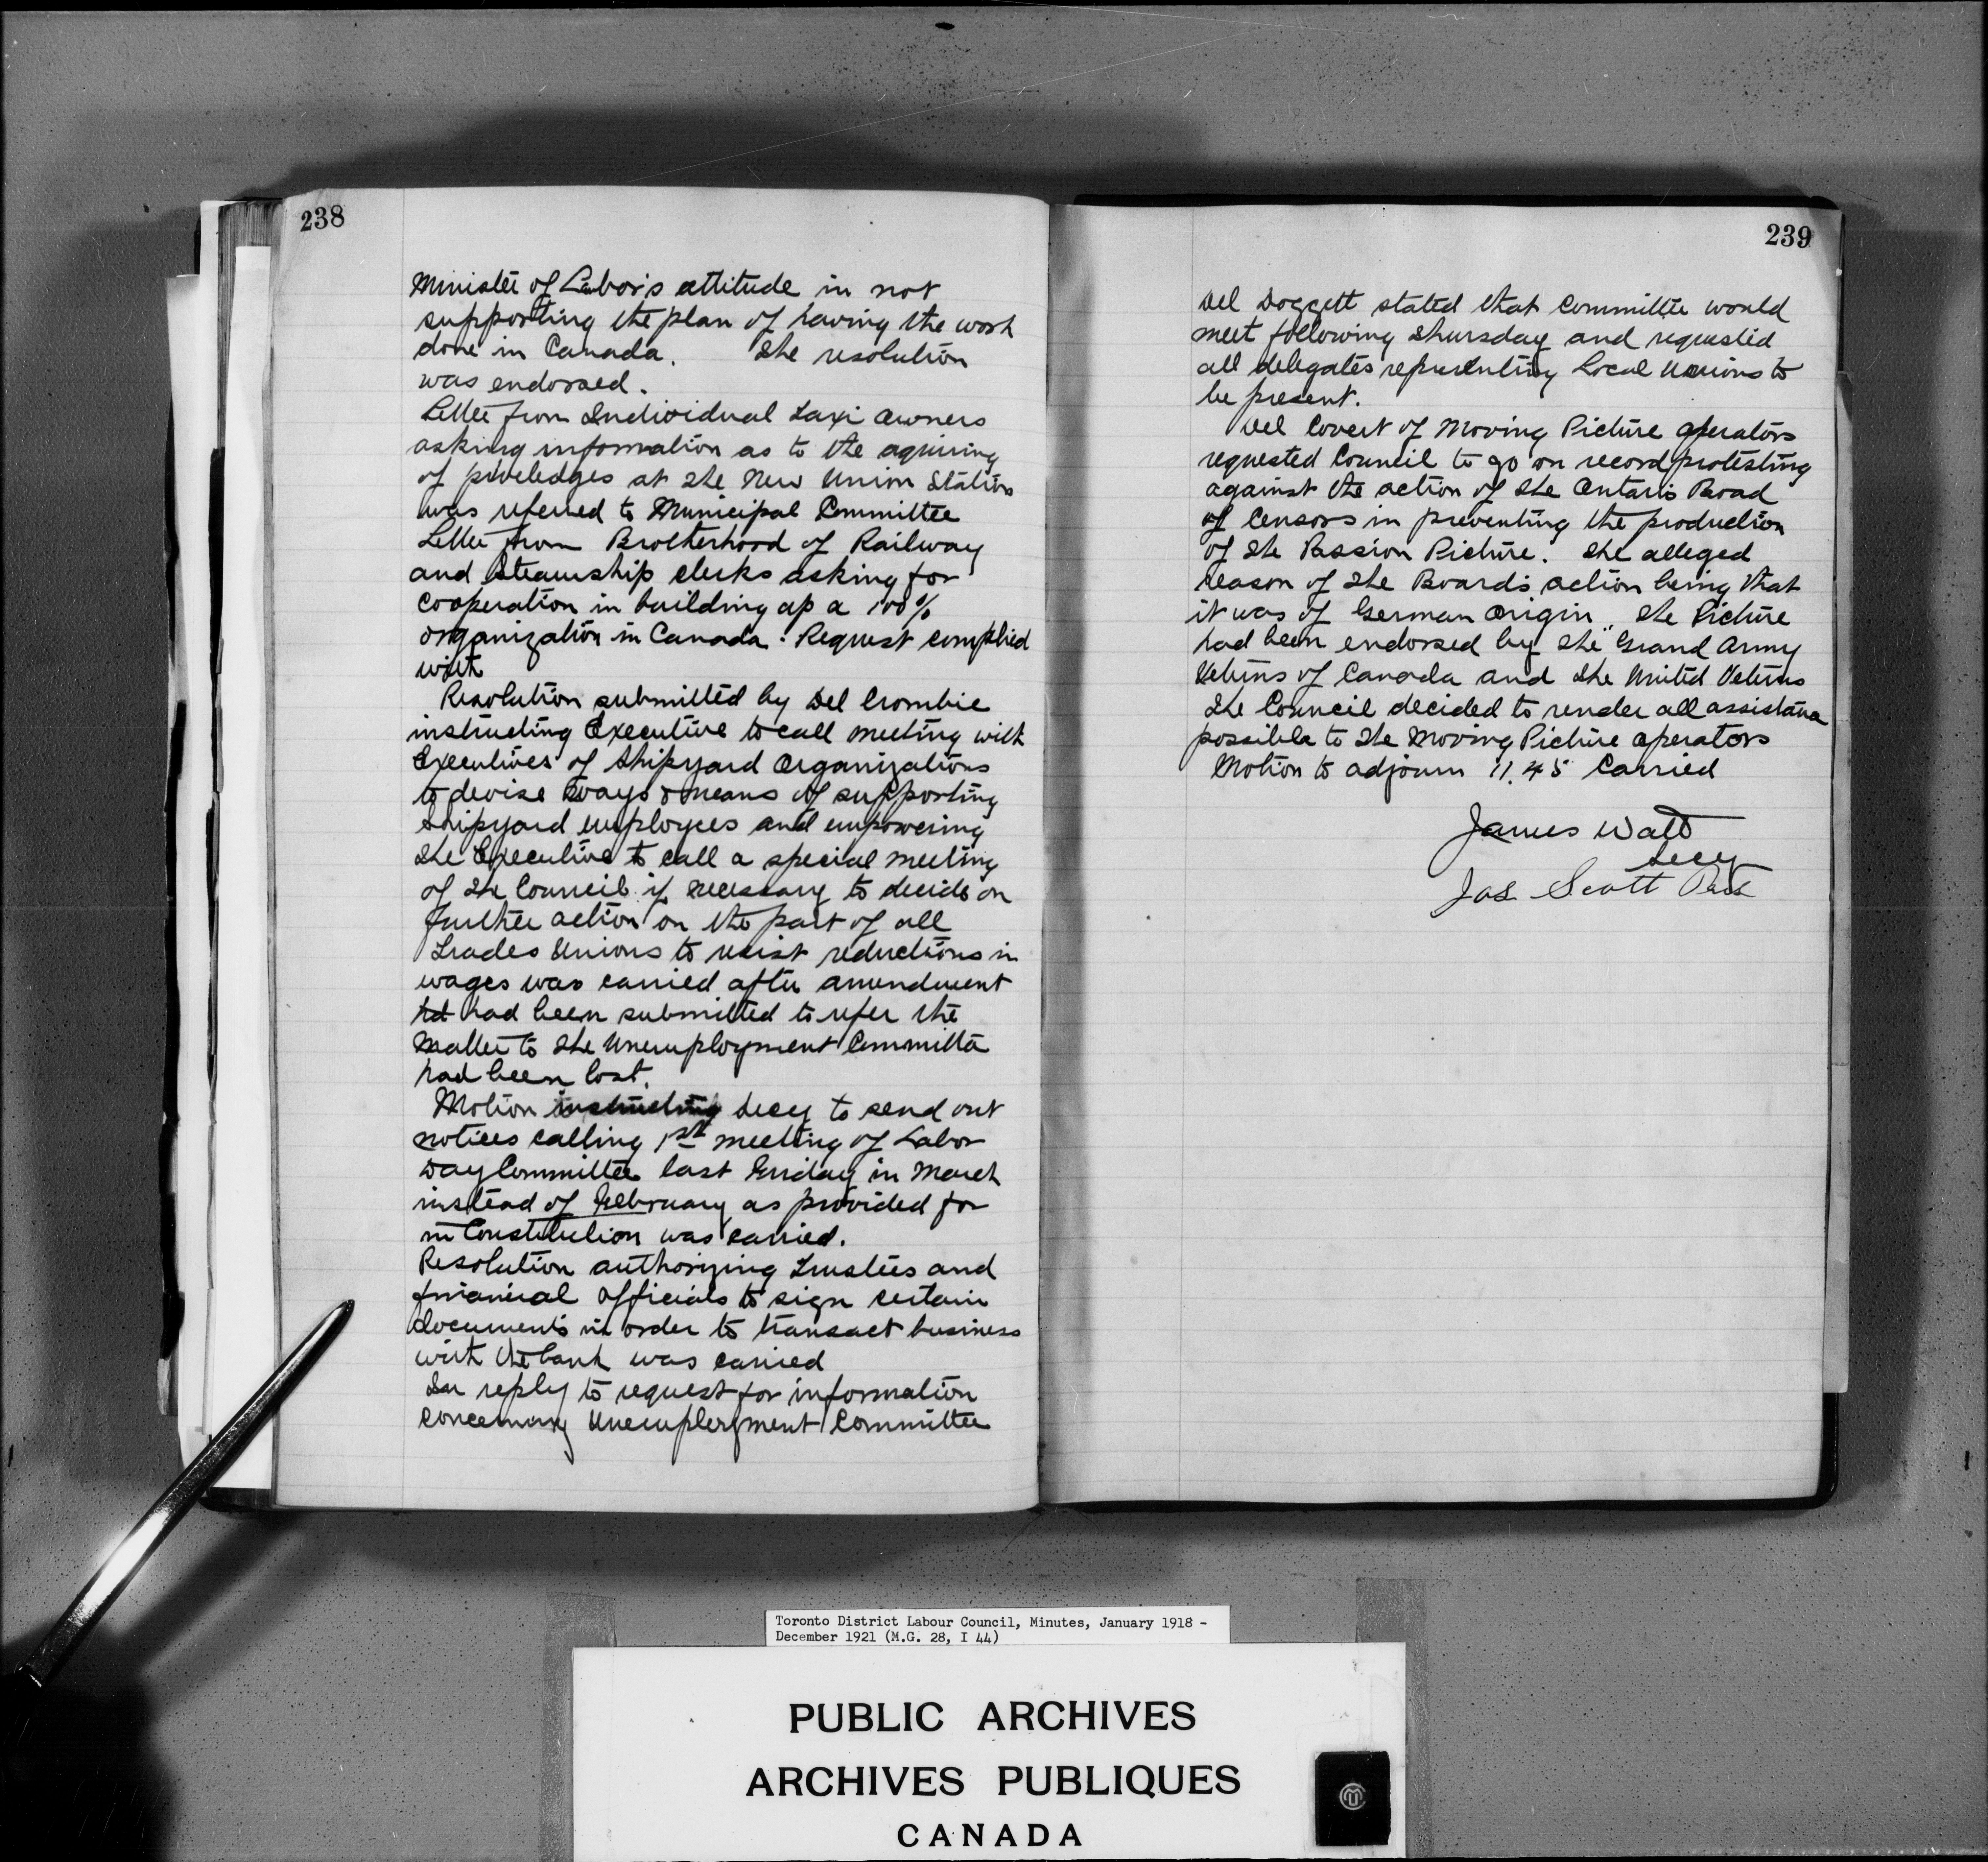 238
Minister of Labor's attitude in not
supporting the plan of having the work
done in Canada. The resolution
was endorsed.
Letter from Individual Taxi Owners
asking information as to the aquiring
of priveledges at the New Union Station
was referred to Municipal Committee
Letter from Brotherhood of Railway
and Steamship clerks asking for
cooperation in building up a 100%
organization in Canada. Request complied
with
Resolution submitted by Del Crombie
instructing Executive to call meeting with
Executives of Shipyard Organizations
to devise ways & means of supporting
Shipyard employees and empowering
the Executive to call a special meeting
of the Council if necessary to decide on
further action on the part of all
Trades Unions to resist reductions in
wages was carried after amendment
hd had been submitted to refer the
matter to the Unemployment Committee
had been lost.
Motion instructing Secy to send out
notices calling 1st meeting of Labor
Day Committee last Friday in March
instead of February as provided for
in Constitution was carried.
Resolution authorizing Trustees and
financial officials to sign certain
documents in order to transact business
with the bank was carried
In reply to request for information
concerning Unemployment Committee
239
Del Doggett stated that committee would
meet following Thursday and requested
all delegates representing Local Unions to
be present.
Del Covert of Moving Picture Operators
requested Council to go on record protesting
against the action of the Ontario Broad
of Censors in preventing the production
of the Passion Picture. The alleged
reason of the Board's action being that
it was of German Origin. The Picture
had been endorsed by the Grand Army
Veterns of Canada and the United Veterns
The Council decided to render all assistance
possible to the Moving Picture Operators
Motion to adjourn 11.45 Carried
James Watt
Secy
Jas Scott Pres
Toronto District Labour Council, Minutes, January 1918 -
December 1921 (M.G. 28, I 44)
PUBLIC ARCHIVES
ARCHIVES PUBLIQUES
CANADA